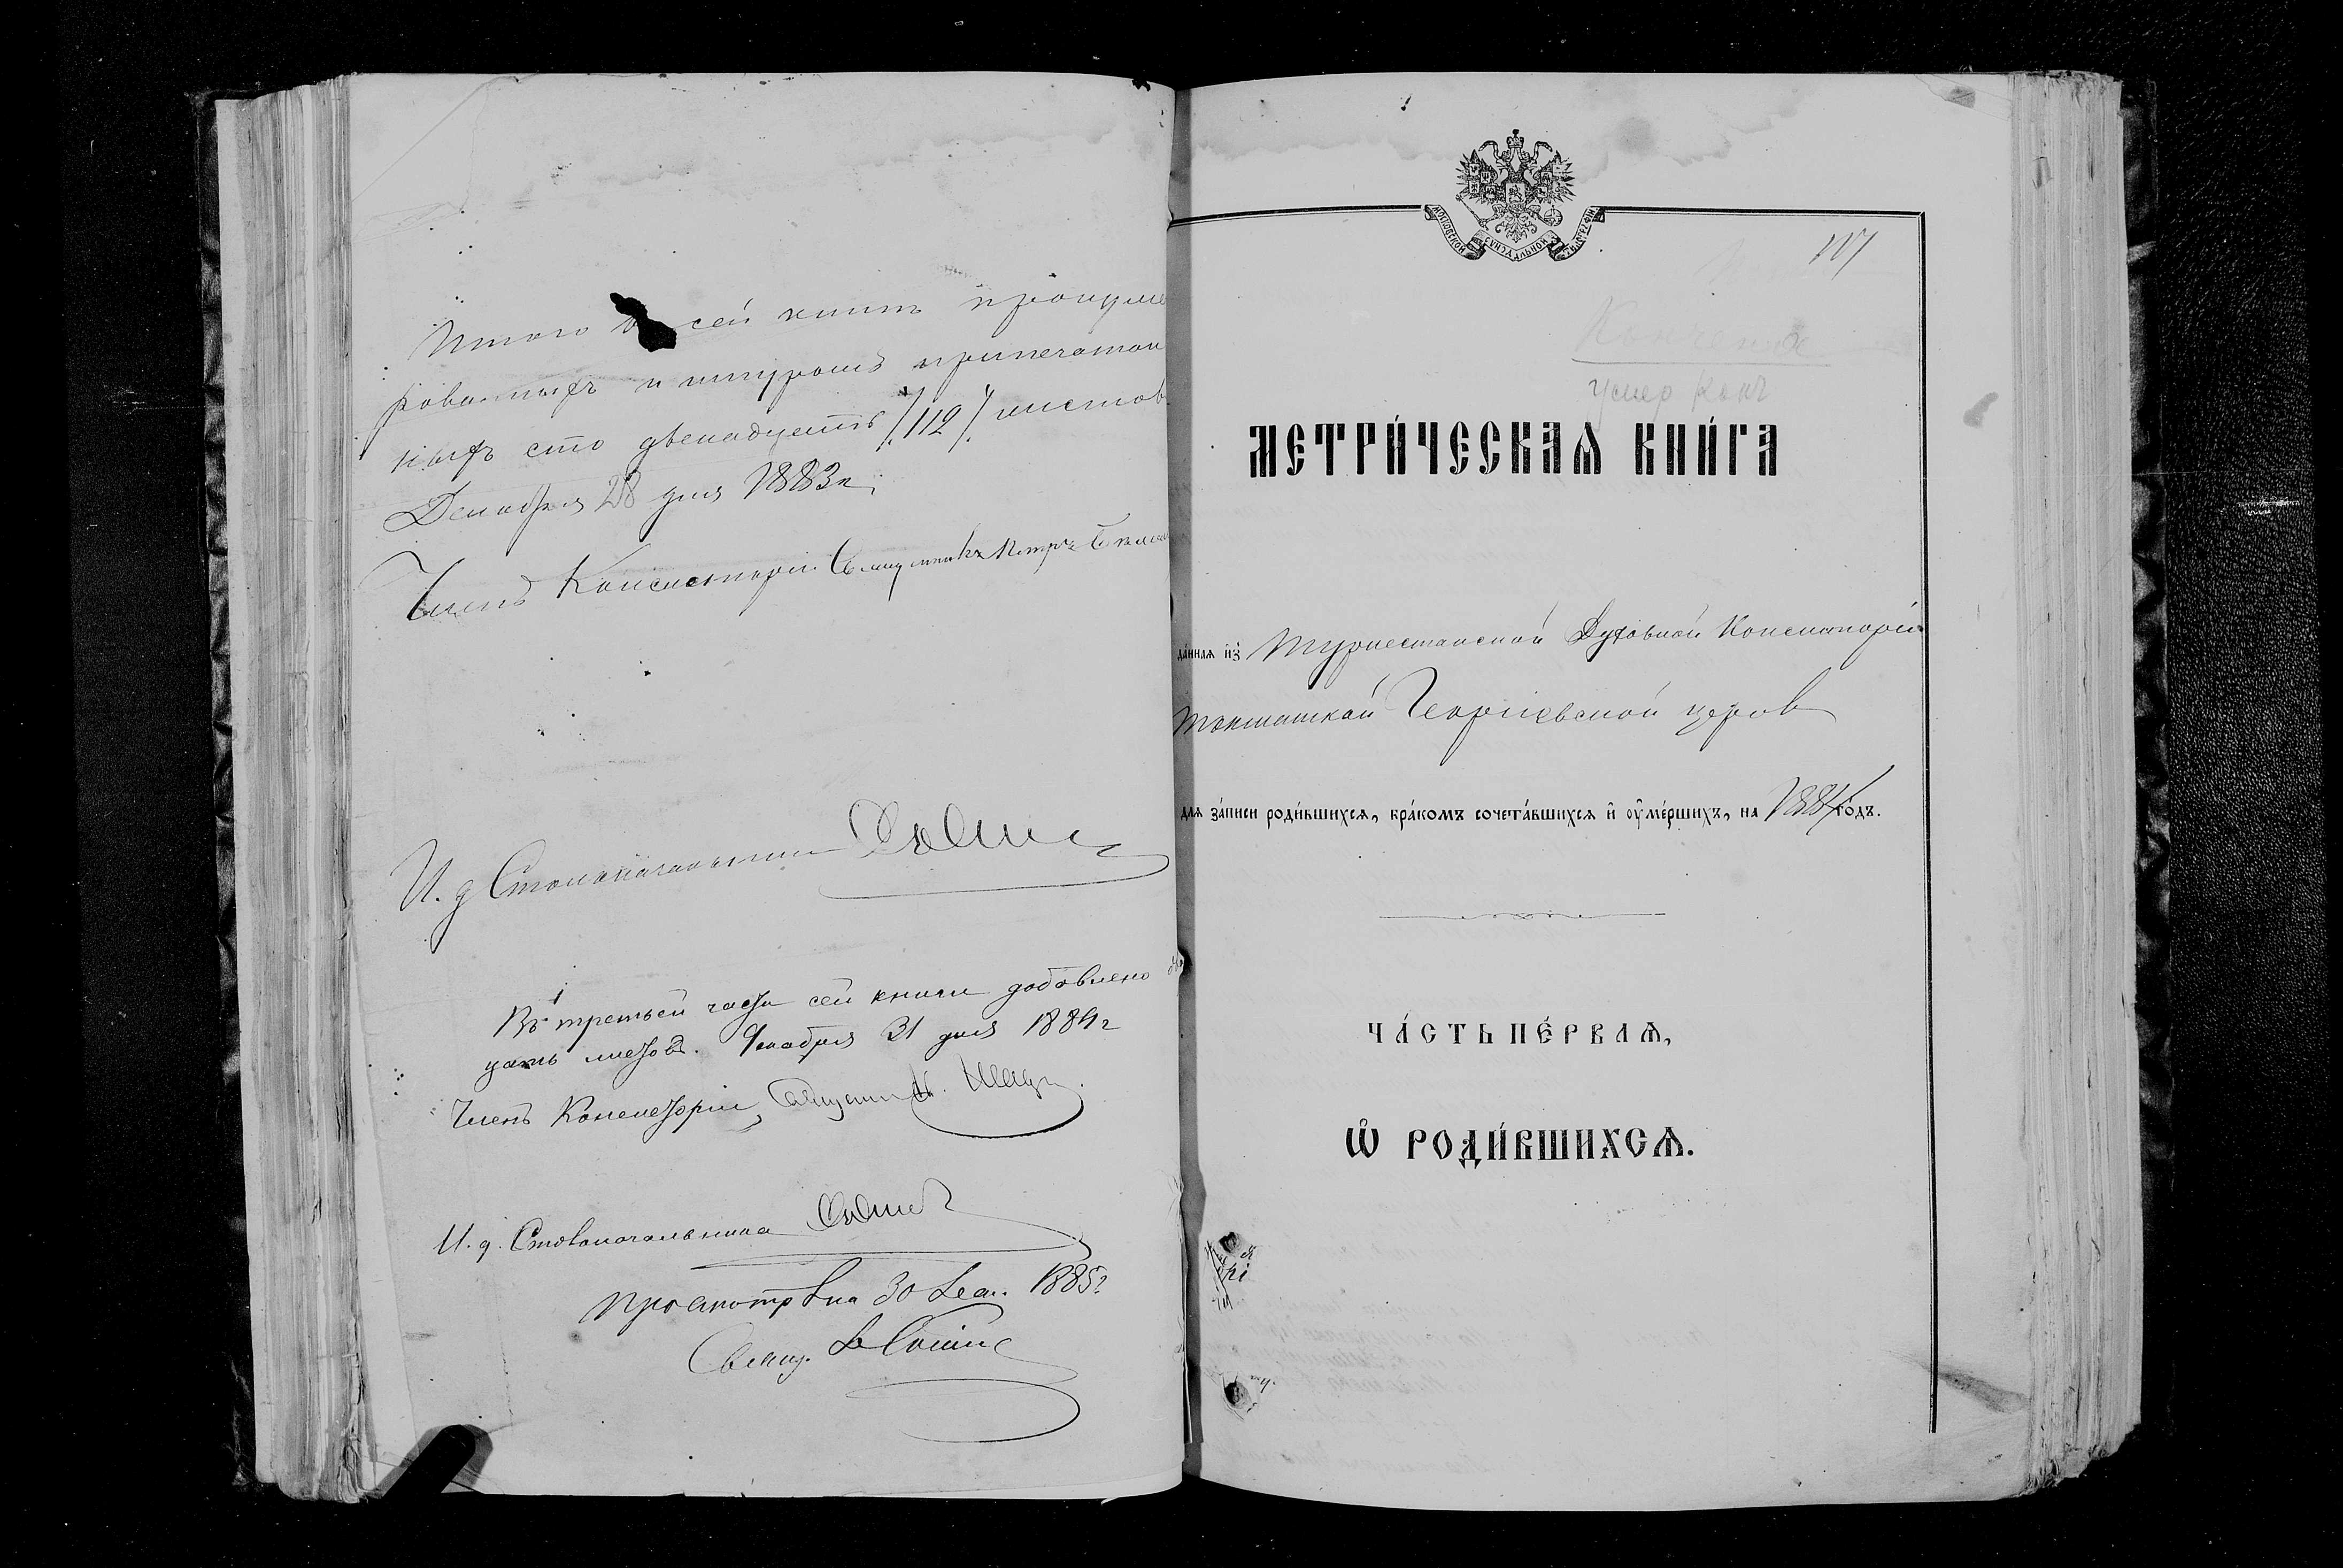 Итого въ сей книгѣ пронуме
рованныхъ и шнуромъ припечатан
ныхъ сто двенадцать /.112/. листов.
Декабря 28 дня 1883 г.
Членъ Консисторіи Священникъ Петръ
И. д Столоначальника
Въ третьей части сей книги добавлено
цать листовъ. Декабря 31 дня 1884 г
Членъ Консисторіи, Священникъ
И. д. Столоначальника
Просмотрѣна 30 1885 г
Свящ.
МОСКОВСКОЙ СѴНОДАЛЬНОЙ ТИПОГРАФІИ
107
Умер
МЕТРИ́ЧЕСКАѦ КНИ́ГА
да́ннаѧ и҆з̾ Туркестанской Духовной Консисторіи
Токмакской Георгіевской церкв
длѧ за́писи роди́вшихсѧ, бра́комъ сочета́вшихсѧ и҆ ѹ҆ме́ршихъ, на 1884 го́дъ.
ЧА́СТЬ ПЕ́РВАѦ,
Ѡ҆ РОДИ́ВШИХСѦ.